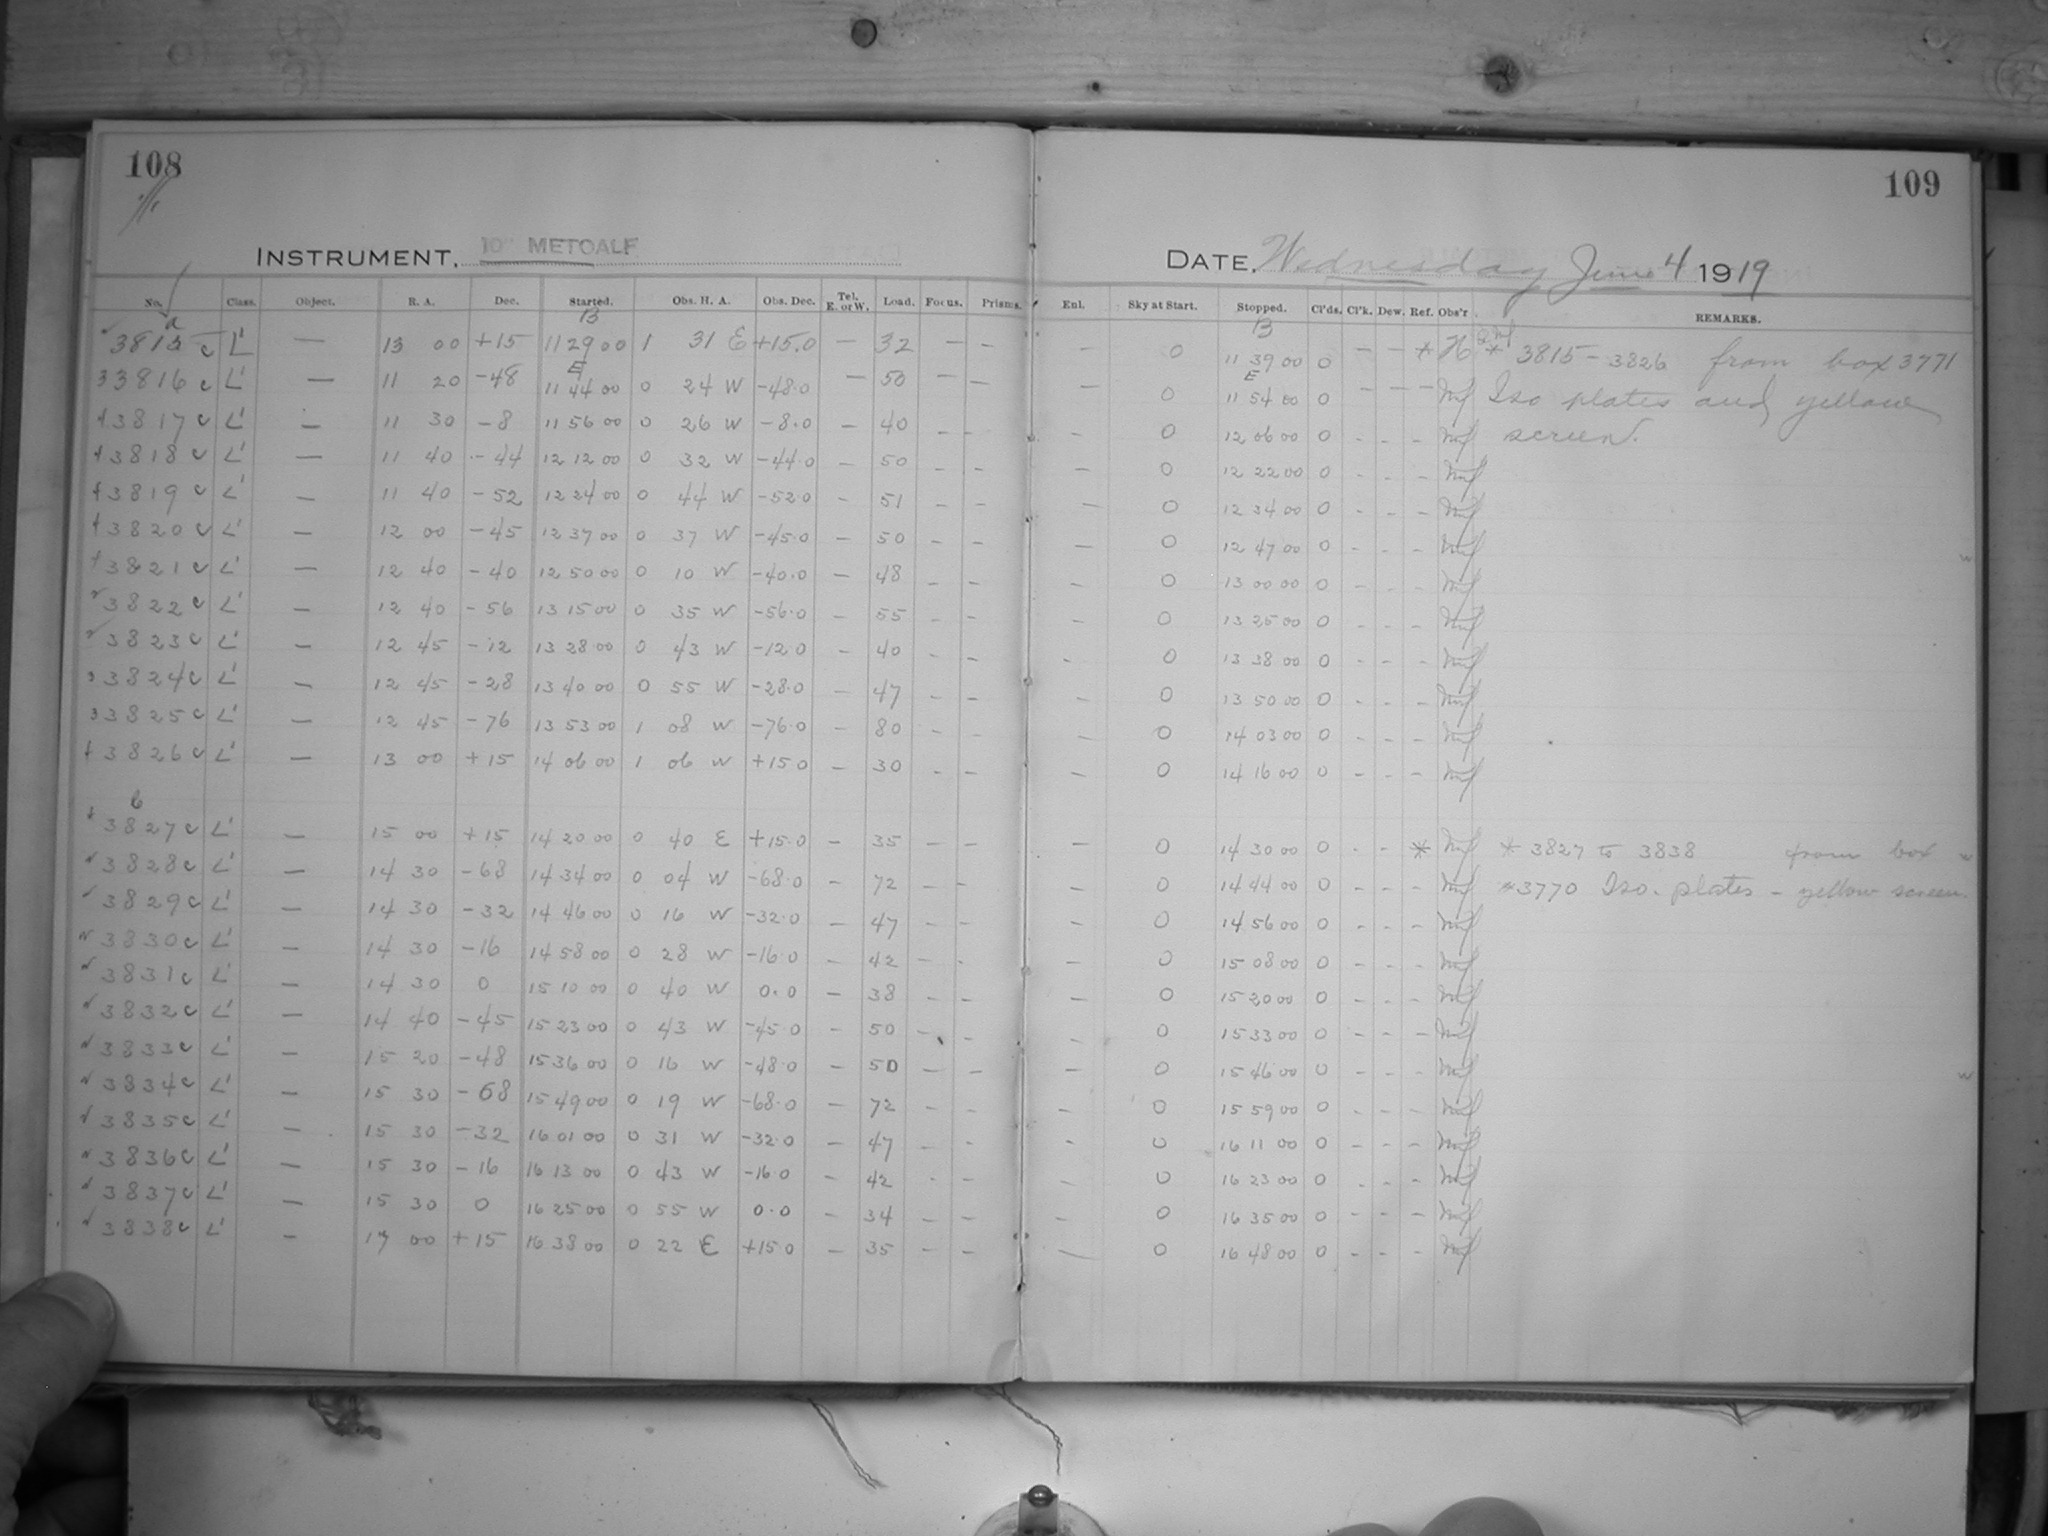 108
109
INSTRUMENT, 10" METCALF
DATE, Wednesday June 4 1919
No. Class. Object. R. A. Dec. Started. Obs. H. A. Obs. Dec. Tel. E. or W. Load. Focus. Prisms. Enl. Sky at Start. Stopped. Cl'ds. Cl'k. Dew. Ref. Obs'r. REMARKS.
a B B
3815 c L' — 13 00 +15 11 29 00 1 31 E +15.0 — 32 — — — 0 11 39 00 0 — — * H * 3815 - 3826 from box 3771
E E
3816 c L' — 11 20 -48 11 44 00 0 24 W -48.0 — 50 — — — 0 11 54 00 0 — — — Iso plates and yellow
3817 c L' — 11 30 -8 11 56 00 0 26 W -8.0 — 40 — — — 0 12 06 00 0 - - - screen.
3818 c L' — 11 40 -44 12 12 00 0 32 W -44.0 — 50 — — — 0 12 22 00 0 - - -
3819 c L' — 11 40 -52 12 24 00 0 44 W -52.0 - 51 - - — 0 12 34 00 0 - - -
3820 c L' — 12 00 -45 12 37 00 0 37 W -45.0 — 50 — - — 0 12 47 00 0 - - -
3821 c L' — 12 40 -40 12 50 00 0 10 W -40.0 — 48 - - — 0 13 00 00 0 - - -
3822 c L' — 12 40 -56 13 15 00 0 35 W -56.0 — 55 - - - 0 13 25 00 0 - - -
3823 c L' — 12 45 -12 13 28 00 0 43 W -12.0 - 40 - - - 0 13 38 00 0 - - -
3824 c L' — 12 45 -28 13 40 00 0 55 W -28.0 - 47 - - - 0 13 50 00 0 - - -
3825 c L' — 12 45 -76 13 53 00 1 08 W -76.0 - 80 - - - 0 14 03 00 0 - - -
3826 c L' — 13 00 +15 14 06 00 1 06 W +15.0 - 30 - - — 0 14 16 00 0 - - -
b
3827 c L' — 15 00 +15 14 20 00 0 40 E +15.0 - 35 — — — 0 14 30 00 0 - - * * 3827 to 3838 from box
3828 c L' — 14 30 -68 14 34 00 0 04 W -68.0 - 72 — - — 0 14 44 00 0 - - - #3770 Iso. plates - yellow screen.
3829 c L' — 14 30 -32 14 46 00 0 16 W -32.0 - 47 - - — 0 14 56 00 0 - - -
3830 c L' — 14 30 -16 14 58 00 0 28 W -16.0 - 42 - - — 0 15 08 00 0 - - -
3831 c L' — 14 30 0 15 10 00 0 40 W 0.0 — 38 - - — 0 15 20 00 0 - - -
3832 c L' — 14 40 -45 15 23 00 0 43 W -45.0 - 50 - - - 0 15 33 00 0 - - -
3833 c L' — 15 20 -48 15 36 00 0 16 W -48.0 — 50 — — — 0 15 46 00 0 - - -
3834 c L' — 15 30 -68 15 49 00 0 19 W -68.0 — 72 - - — 0 15 59 00 0 - - -
3835 c L' — 15 30 -32 16 01 00 0 31 W -32.0 - 47 - - - 0 16 11 00 0 - - -
3836 c L' — 15 30 -16 16 13 00 0 43 W -16.0 - 42 - - - 0 16 23 00 0 - - -
3837 c L' — 15 30 0 16 25 00 0 55 W 0.0 - 34 - - - 0 16 35 00 0 - - -
3838 c L' — 17 00 +15 16 38 00 0 22 E +15.0 - 35 - - — 0 16 48 00 0 - - -